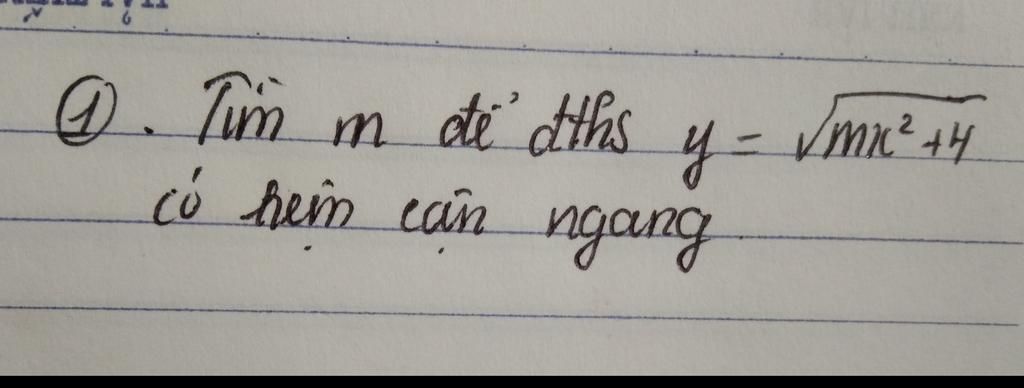 ①. Tìm m để đths y = √mx² + 4
có tiệm cận ngang